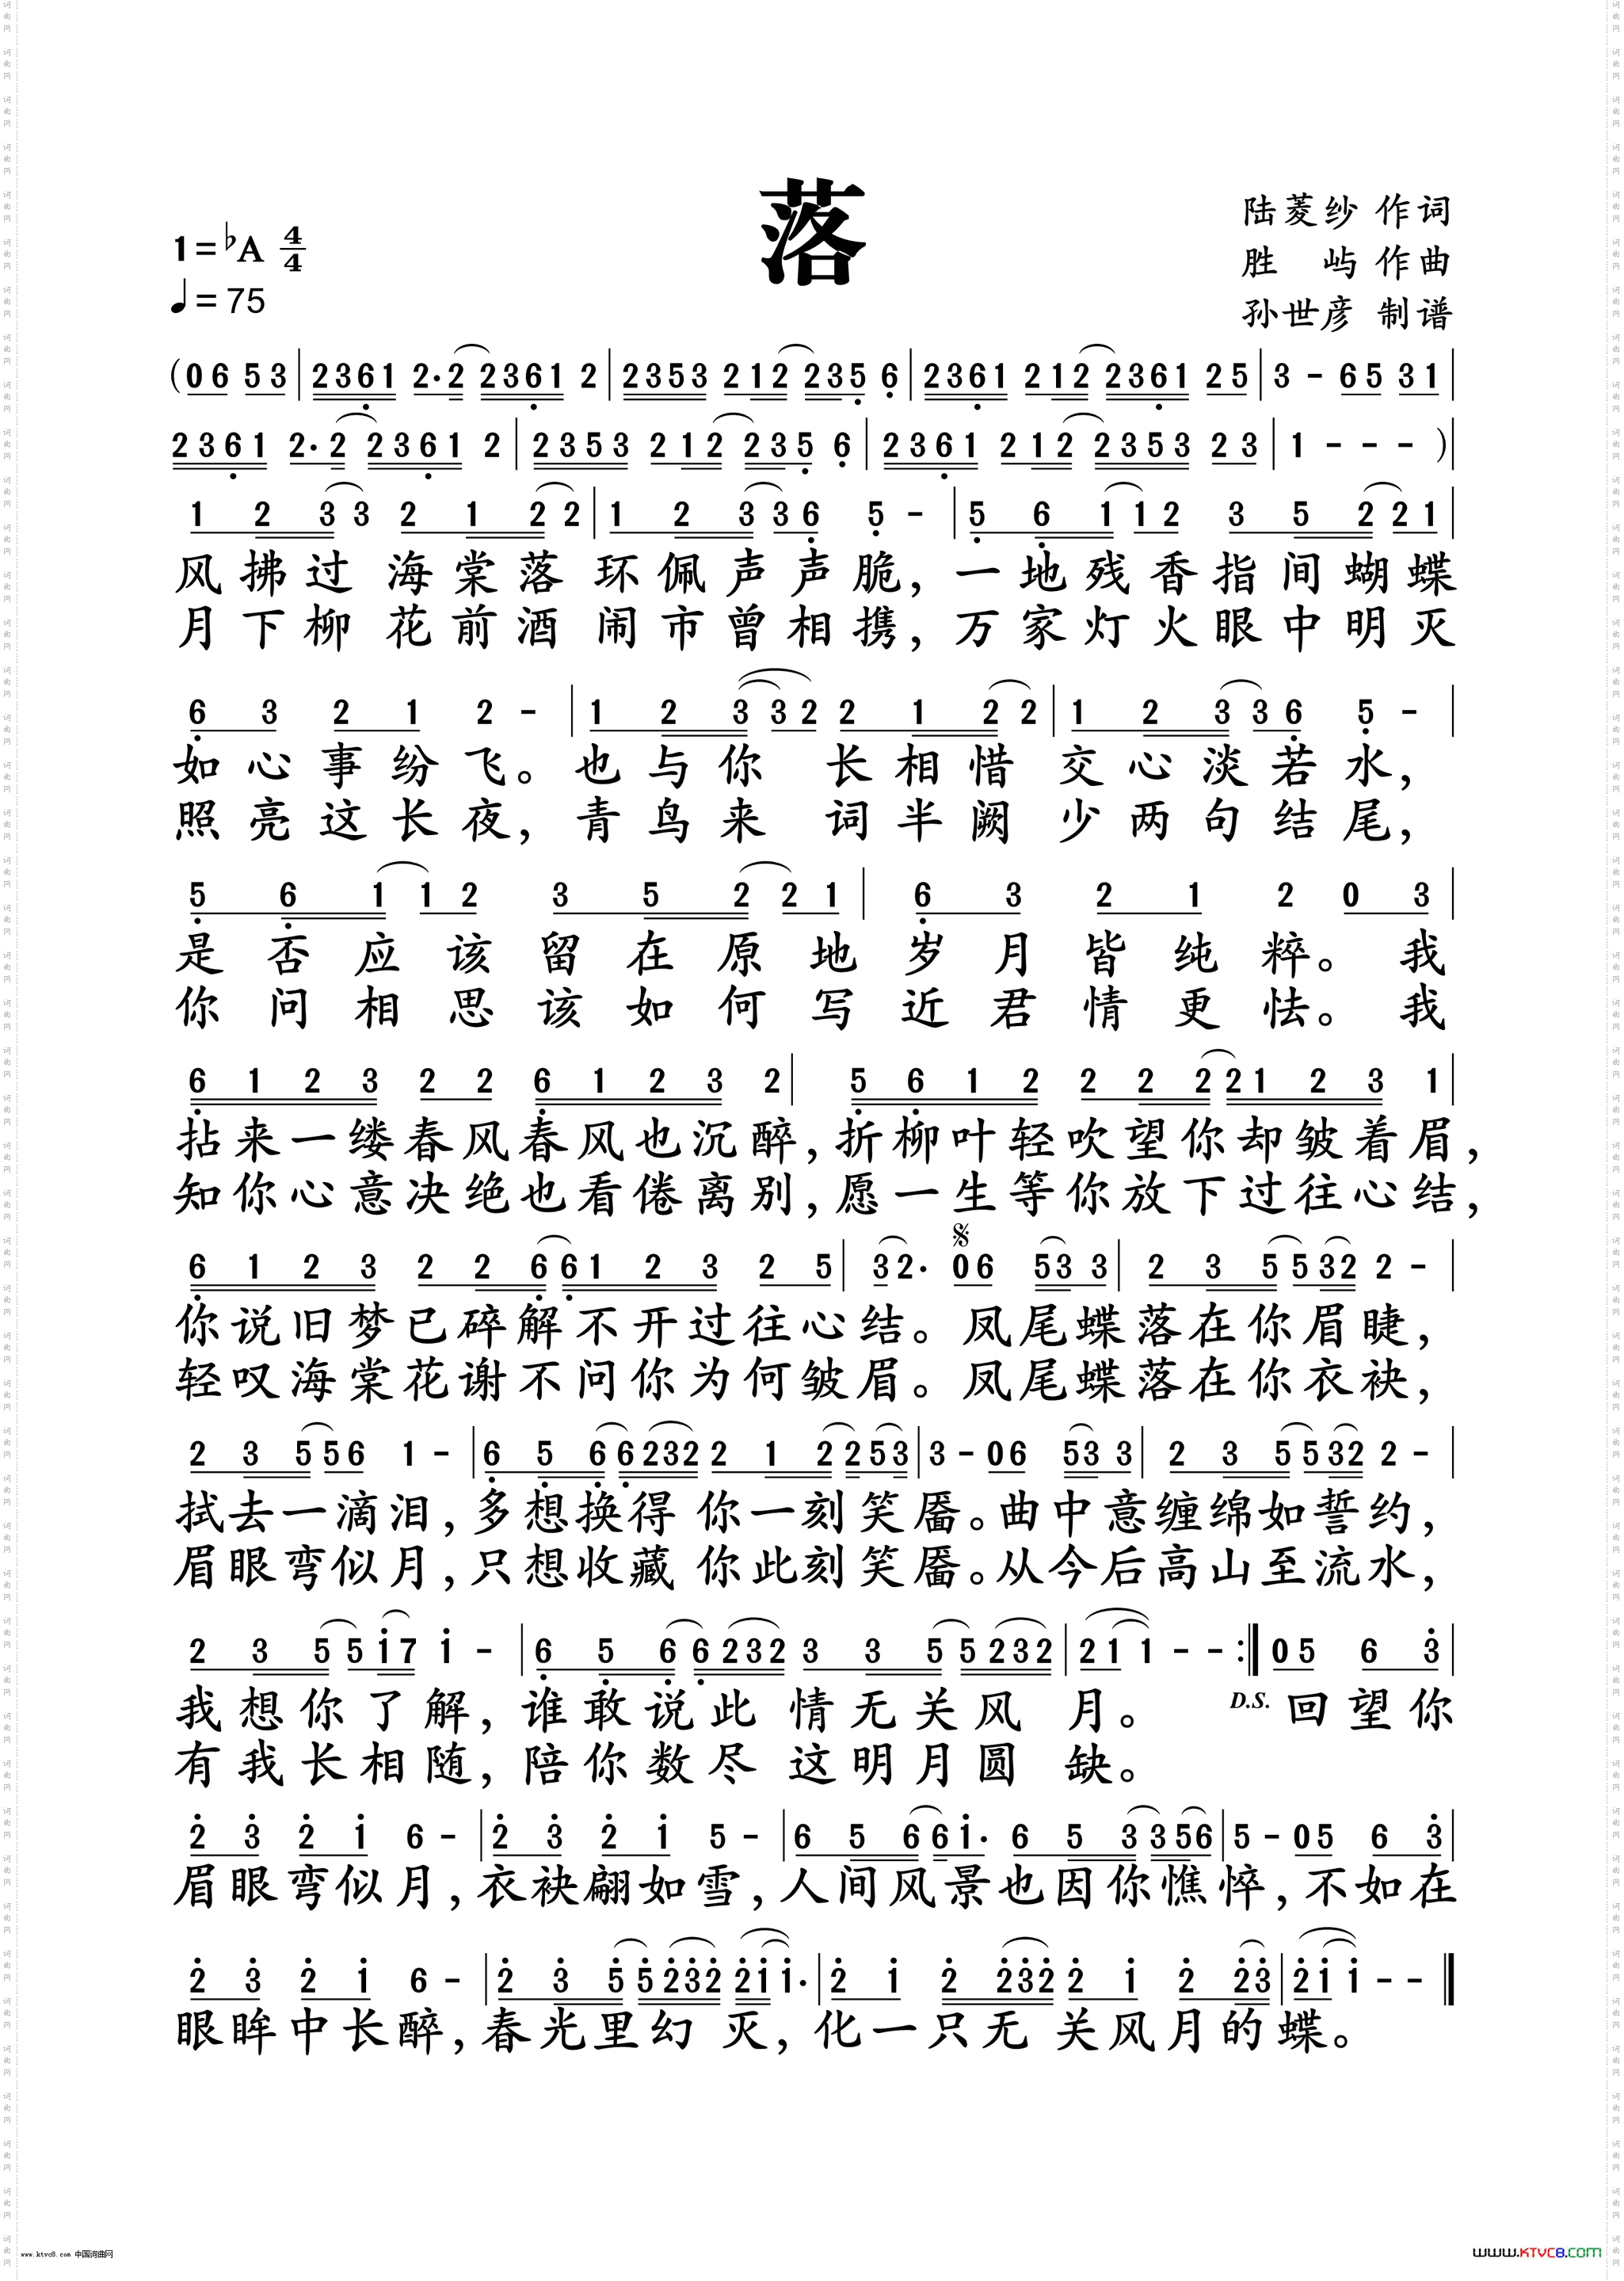 落
1=♭A 4/4
♩=75
陆菱纱 作词
胜 屿 作曲
孙世彦 制谱
(06 53|2361 2·2 2361 2|2353 212 235 6|2361 212 2361 25|3 - 65 31|
2361 2·2 2361 2|2353 212 235 6|2361 212 2353 23|1 - - - )|
1 2 3 3 2 1 2 2|1 2 3 36 5 -|5 6 1 12 3 5 2 21|
风拂过 海棠落 环佩声声脆，一地残香指间蝴蝶
月下柳 花前酒 闹市曾相携，万家灯火眼中明灭
6 3 2 1 2 -|1 2 3 32 2 1 2 2|1 2 3 36 5 -|
如心事纷飞。也与你 长相惜 交心淡若水，
照亮这长夜，青鸟来 词半阙 少两句结尾，
5 6 1 12 3 5 2 21|6 3 2 1 2 0 3|
是否应该留在原地岁月皆纯粹。我
你问相思该如何写近君情更怯。我
6 1 2 3 2 2 6 1 2 3 2|5 6 1 2 2 2 2 21 2 3 1|
拈来一缕春风春风也沉醉，折柳叶轻吹望你却皱着眉，
知你心意决绝也看倦离别，愿一生等你放下过往心结，
6 1 2 3 2 2 6 61 2 3 2 5|32· 06 53 3|2 3 5 532 2 -|
你说旧梦已碎解不开过往心结。凤尾蝶落在你眉睫，
轻叹海棠花谢不问你为何皱眉。凤尾蝶落在你衣袂，
2 3 5 56 1 -|6 5 6 6232 2 1 2 253|3 - 06 53 3|2 3 5 532 2 -|
拭去一滴泪，多想换得 你一刻笑靥。曲中意缠绵如誓约，
眉眼弯似月，只想收藏 你此刻笑靥。从今后高山至流水，
2 3 5 5i7 i -|6 5 6 6232 3 3 5 5232|21 1 - -:‖05 6 3|
我想你了解，谁敢说此 情无关风 月。 D.S. 回望你
有我长相随，陪你数尽 这明月圆 缺。
2 3 2 i 6 -|2 3 2 i 5 -|6 5 6 6i· 6 5 3 356|5 - 05 6 3|
眉眼弯似月，衣袂翩如雪，人间风景也因你憔悴，不如在
2 3 2 i 6 -|2 3 5 5232 2i i·|2 i 2 232 2 i 2 23|2i i - -‖
眼眸中长醉，春光里幻 灭，化一只无 关风月的蝶。
www.ktvc8.com 中国词曲网
WWW.KTVC8.COM